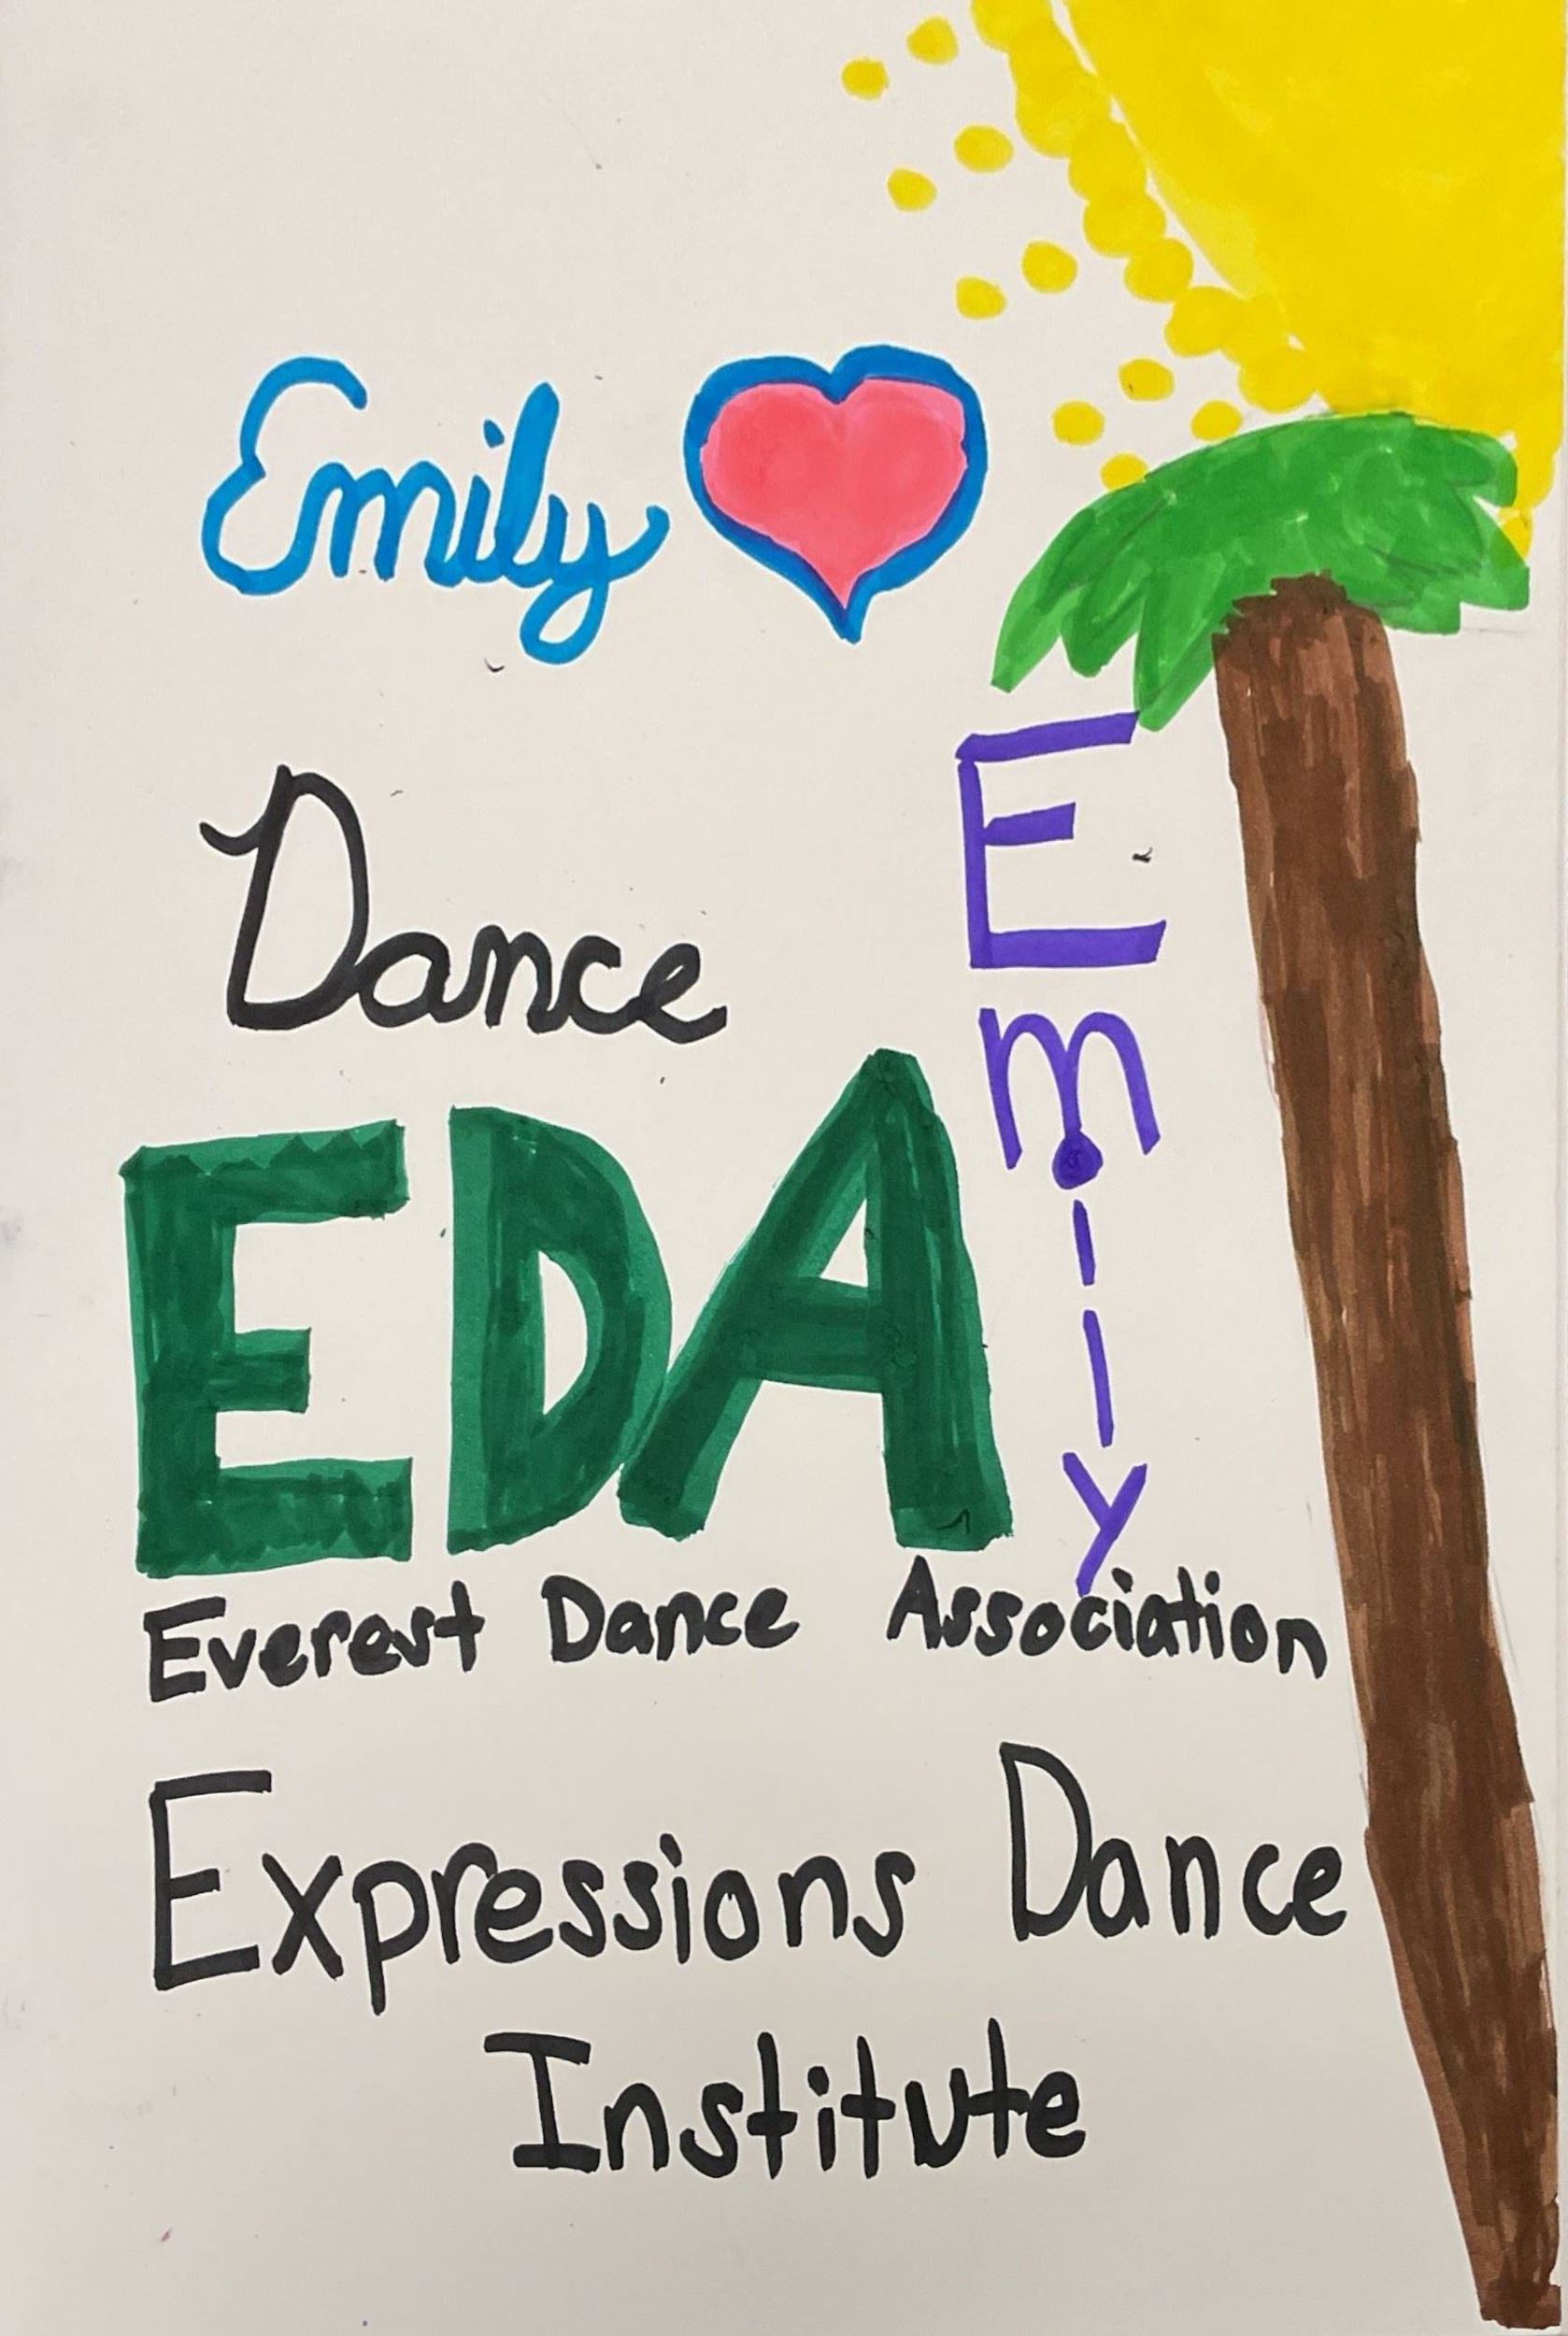 Emily
Dance
EDA
Emily
Everest Dance Association
Expressions Dance
Institute